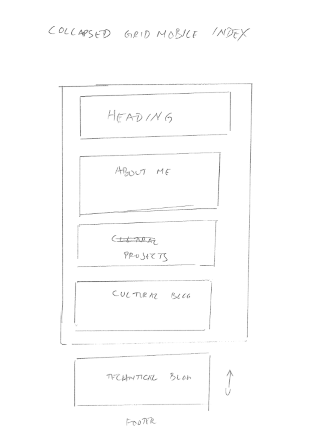 COLLAPSED GRID MOBILE INDEX
HEADING
ABOUT ME
CULTURAL
PROJECTS
CULTURAL BLOG
TECHNICAL BLOG
FOOTER